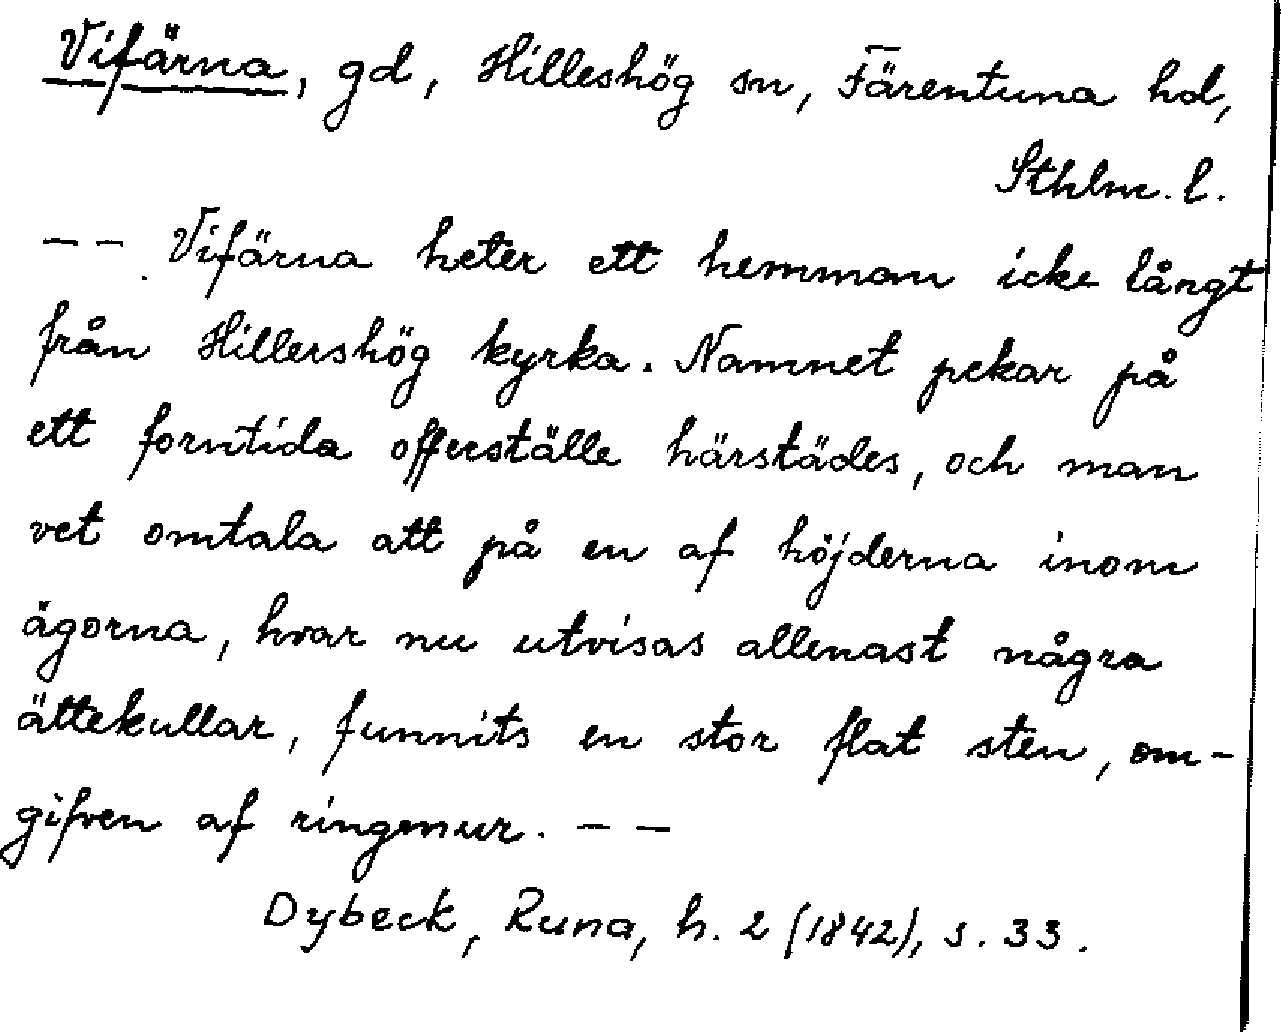 Vifärna, gd, Hilleshög sn, Färentuna hd,
Sthlm. l.
-- Vifärna heter ett hemman icke långt
från Hillershög kyrka. Namnet pekar på
ett forntida offerställe härstädes, och man
vet omtala att på en af höjderna inom
ägorna, hvar nu utvisas allenast några
ättekullar, funnits en stor flat sten, om-
gifven af ringmur. --
Dybeck, Runa, h. 2 (1842), s. 33.